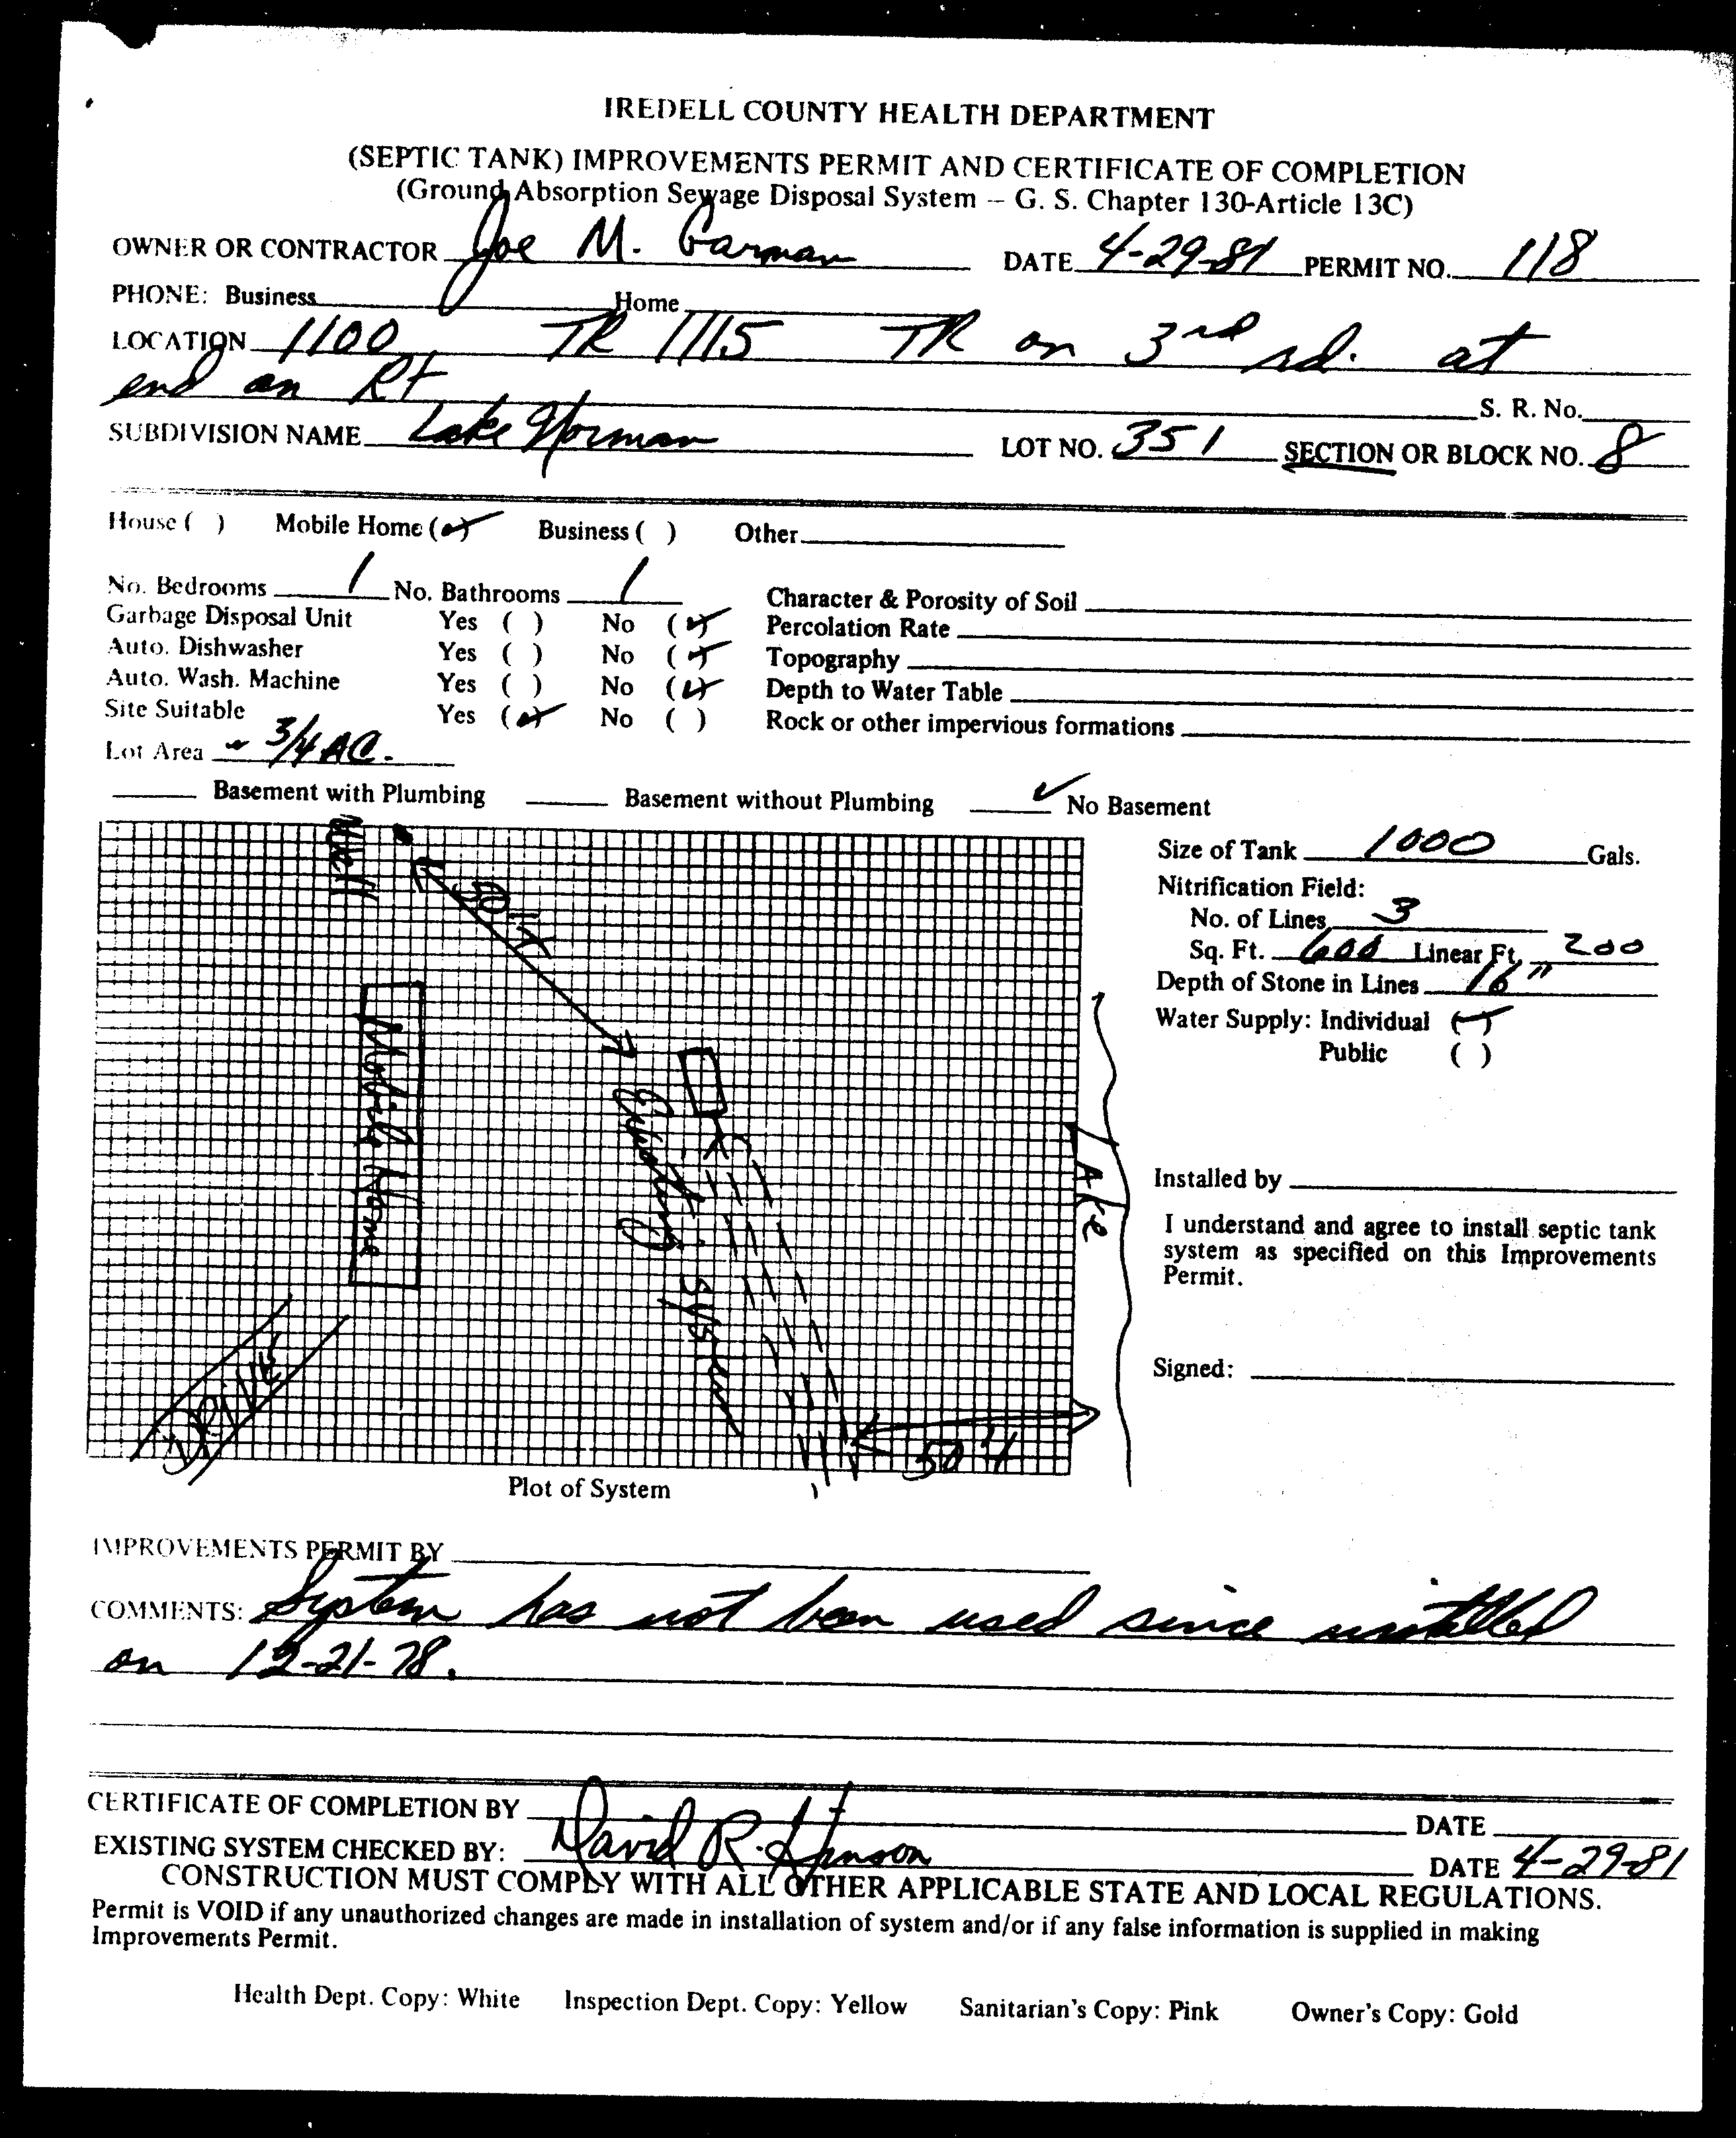 IREDELL COUNTY HEALTH DEPARTMENT
(SEPTIC TANK) IMPROVEMENTS PERMIT AND CERTIFICATE OF COMPLETION
(Ground Absorption Sewage Disposal System -- G. S. Chapter 130-Article 13C)
OWNER OR CONTRACTOR Joe M. Garman DATE 4-29-81 PERMIT NO. 118
PHONE: Business Home
LOCATION 1100 TR 1115 TR on 3rd rd. at
end on Rt S. R. No.
SUBDIVISION NAME Lake Norman LOT NO. 351 SECTION OR BLOCK NO. 8
House ( ) Mobile Home (✓) Business ( ) Other
No. Bedrooms 1 No. Bathrooms 1 Character & Porosity of Soil
Garbage Disposal Unit Yes ( ) No (✓) Percolation Rate
Auto. Dishwasher Yes ( ) No (✓) Topography
Auto. Wash. Machine Yes ( ) No (✓) Depth to Water Table
Site Suitable Yes (✓) No ( ) Rock or other impervious formations
Lot Area 3/4 AC.
Basement with Plumbing Basement without Plumbing ✓ No Basement
Size of Tank 1000 Gals.
Nitrification Field:
No. of Lines 3
Sq. Ft. 600 Linear Ft. 200
Depth of Stone in Lines 16"
Water Supply: Individual (✓)
Public ( )
Well
Mobile Home
Existing System
Drive
Lake
50'+
Installed by
I understand and agree to install septic tank
system as specified on this Improvements
Permit.
Signed:
Plot of System
IMPROVEMENTS PERMIT BY
COMMENTS: System has not been used since installed
on 12-21-78.
CERTIFICATE OF COMPLETION BY DATE
EXISTING SYSTEM CHECKED BY: David R. Hinson DATE 4-29-81
CONSTRUCTION MUST COMPLY WITH ALL OTHER APPLICABLE STATE AND LOCAL REGULATIONS.
Permit is VOID if any unauthorized changes are made in installation of system and/or if any false information is supplied in making
Improvements Permit.
Health Dept. Copy: White Inspection Dept. Copy: Yellow Sanitarian's Copy: Pink Owner's Copy: Gold